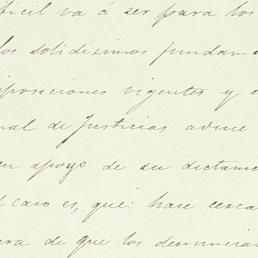 ficil va á ser para los
los solidísimos funda-
posiciones vigentes y e
nal de Justicias aduce
en apoyo de su dictam
l caso es, que: hace cerca
era de que los denuncia